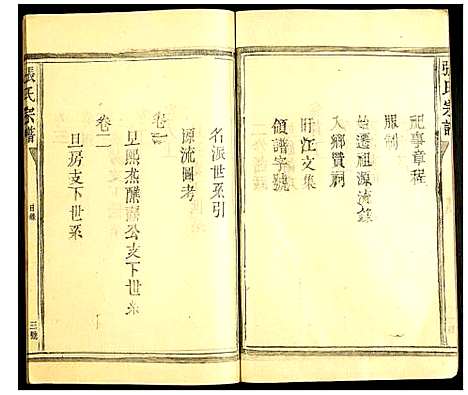 張氏宗譜
祀事章程
服制
始遷祖源流錄
入鄉賢祠
盱江文集
領譜字號
名派世系引
源流圖考
卷一
旦熙杰醮公支下世系
卷二
旦房支下世系
張氏宗譜
目錄
三號